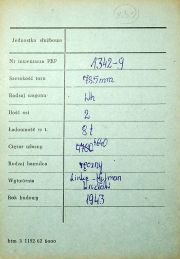 Jednostka służbowa
Nr inwentarza PKP 1342-9
Szerokość toru 785mm
Rodzaj wagonu Wh
Ilość osi 2
Ładowność w t. 8t
Ciężar własny 4660
Rodzaj hamulca ręczny
Wytwórnia Linke-Hofman
Wrocław
Rok budowy 1943